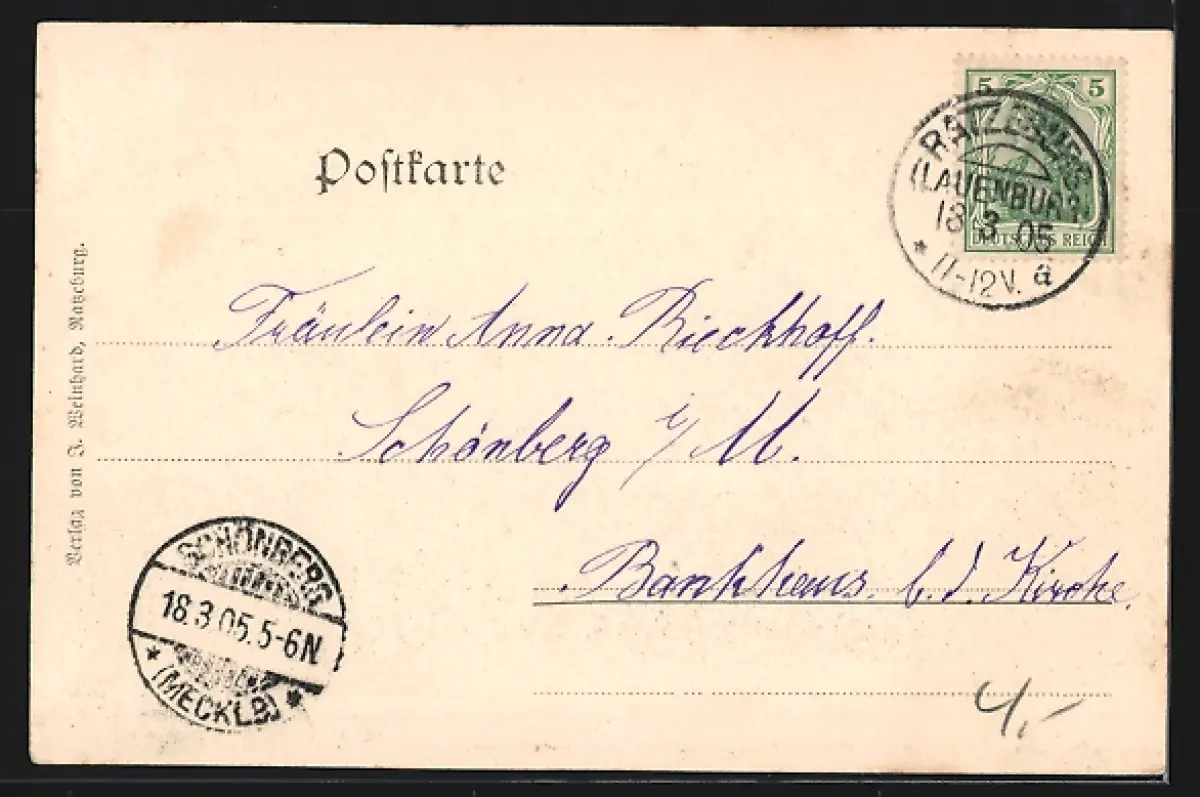 5 5
DEUTSCHES REICH
RATZEBURG
(LAUENBURG)
18.3.05
* 11-12V. a
Poſtkarte
Verlag von J. Weinhard, Ratzeburg.
Fräulein Anna Rieckhoff.
Schönberg i/M.
Bankhaus. b. d. Kirche.
SCHÖNBERG
18.3.05.5-6N.
* (MECKLB) *
4,-